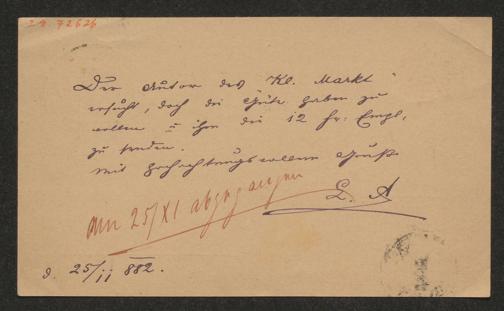 I.N. 72626
Der Autor des "Kl. Markt"
ersucht, doch die Güte haben zu
wollen u ihm die 12 Fr: Expl.
zu senden.
Mit hochachtungsvollem Gruß
L. A
Am 25/XI abgegangen
d. 25/11 882.